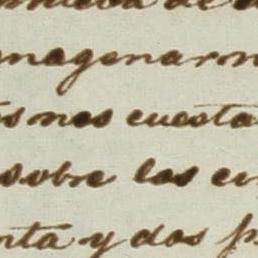 enagenarn
s nos cuesta
sobre los en
nta y dos p